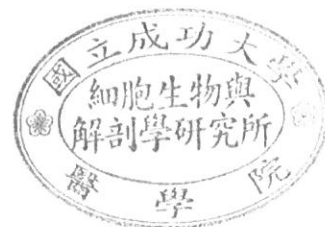 國立成功大學
細胞生物與
解剖學研究所
醫學院